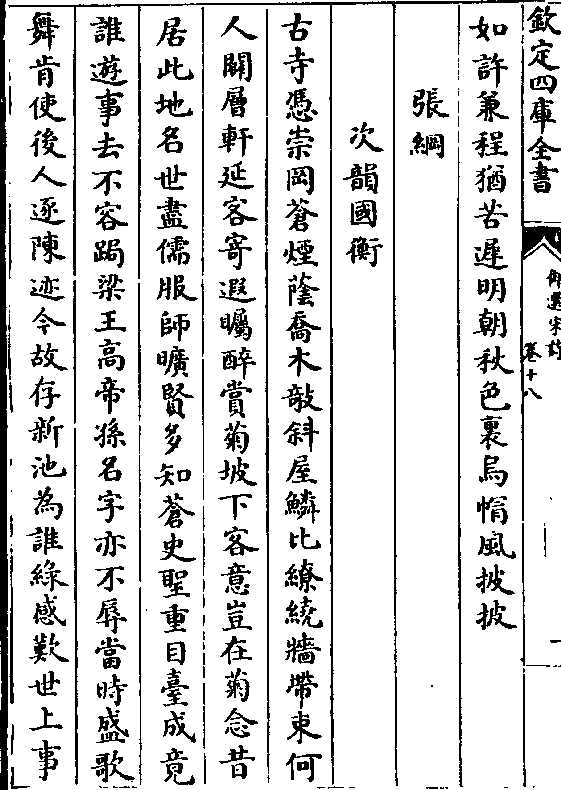 欽定四庫全書
御選宋詩
卷十八
如許兼程猶苦遲明朝秋色裏烏㡌風披披
張綱
次韻國衡
古寺憑崇岡蒼煙蔭喬木敧斜屋鱗比繚繞牆帶束何
人闢層軒延客寄遐矚醉賞菊坡下客意豈在菊念昔
居此地名世盡儒服師曠賢多知蒼史聖重目臺成竟
誰遊事去不容跼梁王高帝孫名字亦不辱當時盛歌
舞肯使後人逐陳迹今故存新池為誰綠感歎世上事